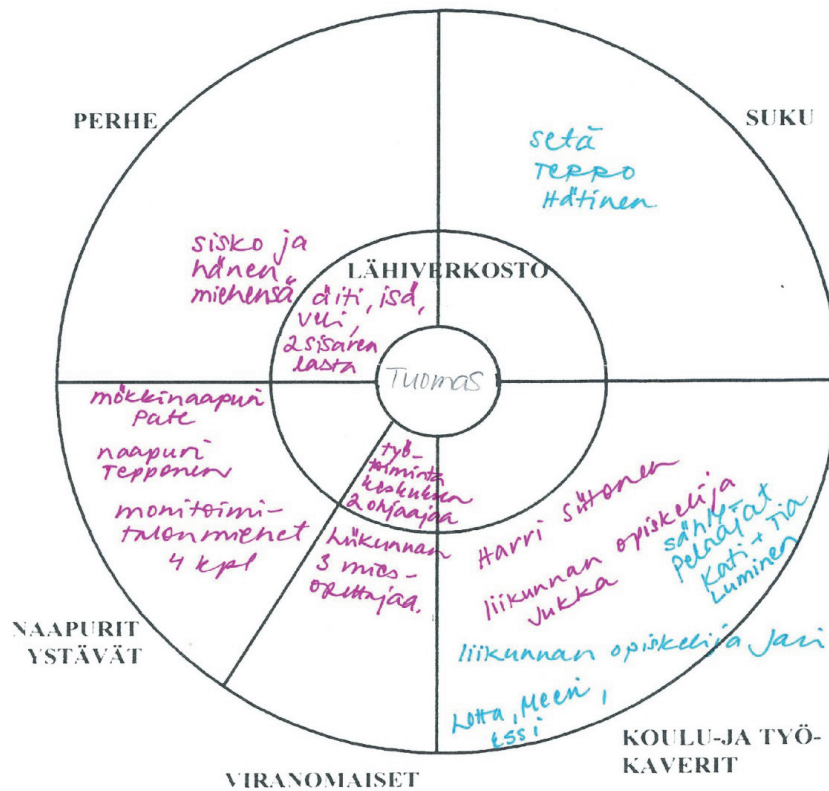 PERHE
SUKU
setä
TERRO
Hätinen
sisko ja
hänen
miehensä
LÄHIVERKOSTO
äiti, isä,
veli,
2 sisaren
lasta
Tuomas
mökkinaapuri
Pate
naapuri
Tepponen
monitoimi-
talonmiehet
4 kpl
työ-
toiminta
keskuksen
2 ohjaajaa
liikunnan
3 mies-
opettajaa.
Harri Siitonen
liikunnan opiskelija
Jukka
sähly-
pelaajat
Kati + Tia
Luminen
liikunnan opiskelija Jari
Lotta, Meeri,
Essi
NAAPURIT
YSTÄVÄT
VIRANOMAISET
KOULU-JA TYÖ-
KAVERIT